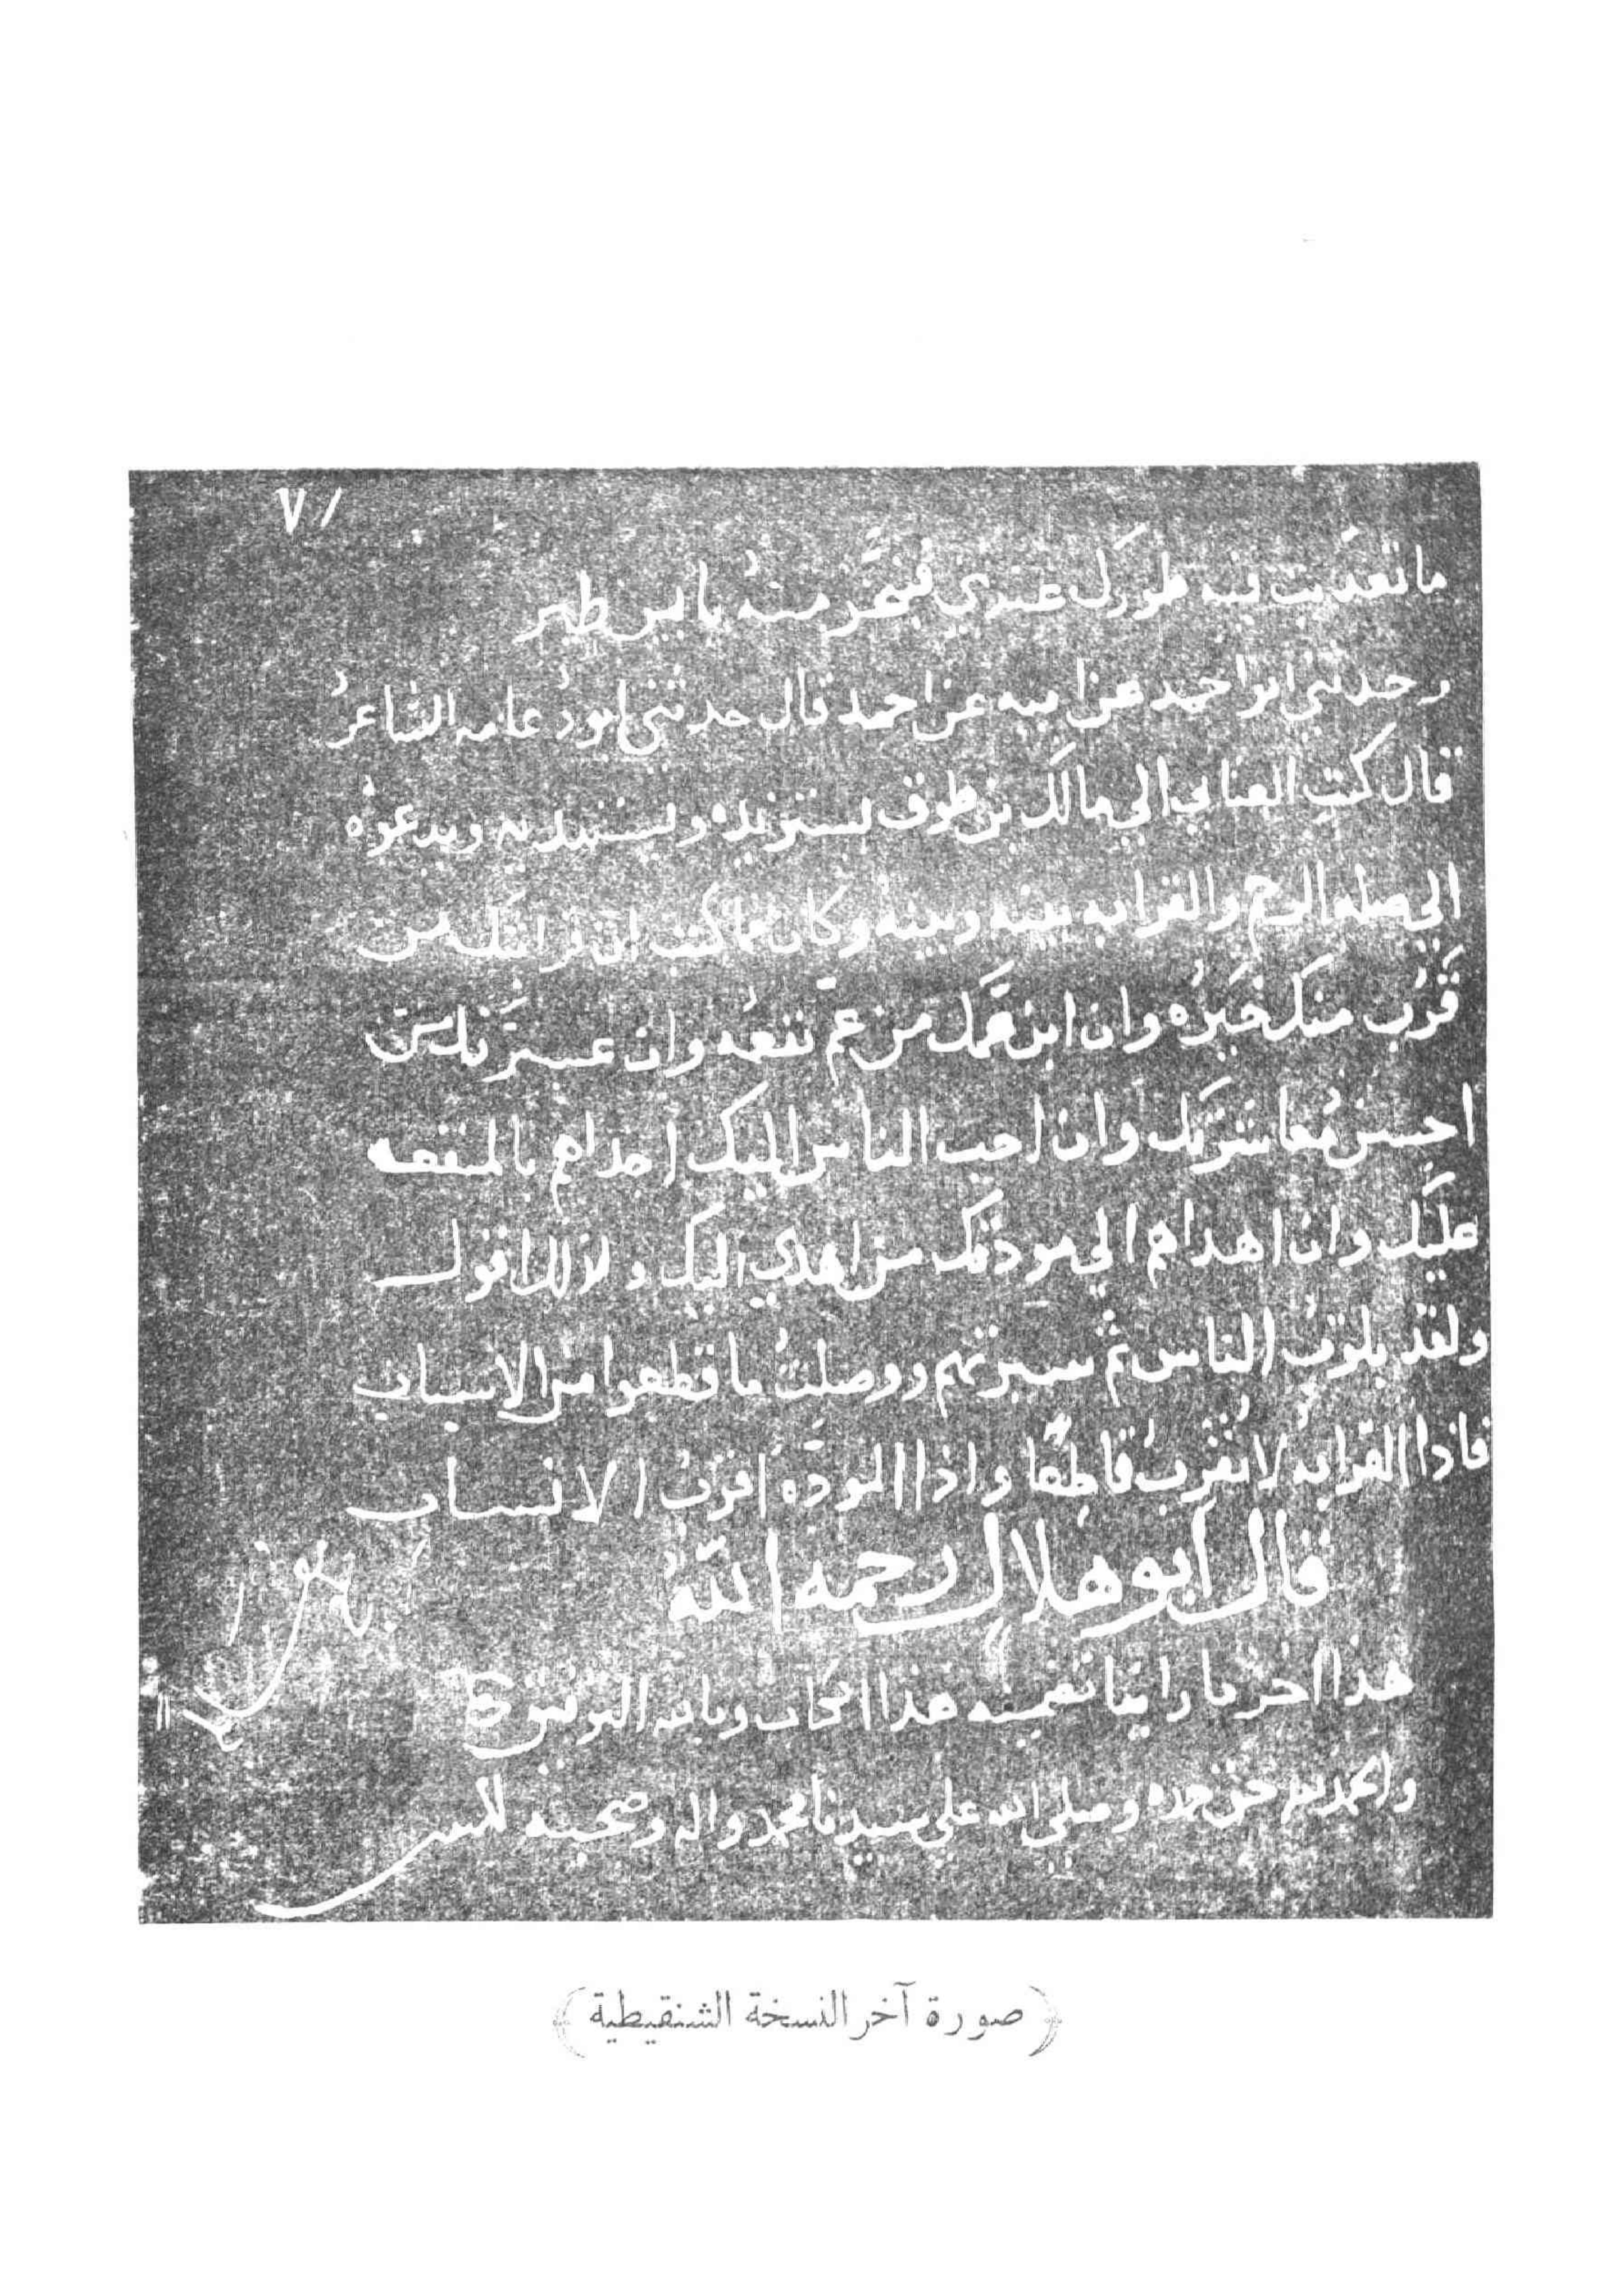 ٧١
ما تعديت فيه طورك عندي فتحر منه يا بين طير
وحدثني ابو احمد عن ابيه عن احمد قال حدثني ابو دعامه الشاعر
قال كتب العتابي الي مالك بن طوق يستزيده ويستبديه ويدعوه
الي صله الرحم والقرابه بينه وبينه وكان مما كتب ان قرابتك من
قرب منك خيره وان ابن عمك من عم نفعه وان عشيرتك من
احسن معاشرتك وان احب الناس اليك اجداهم بالمنفعه
عليك وان اهداهم الي مودتك من اهدي اليك ولذلك اقول
ولقد بلوت الناس ثم سبرتهم ووصلت ما قطعوا من الاسباب
فاذا القرابه لا تقرب قاطعا واذا الموده اقرب الانساب
قال ابو هلال رحمه الله
هذا اخر ما راينا تضمينه هذا الكتاب وبالله التوفيق
والحمد لله حق حمده وصلي الله علي سيدنا محمد واله وصحبه
(صورة آخر النسخة الشنقيطية)